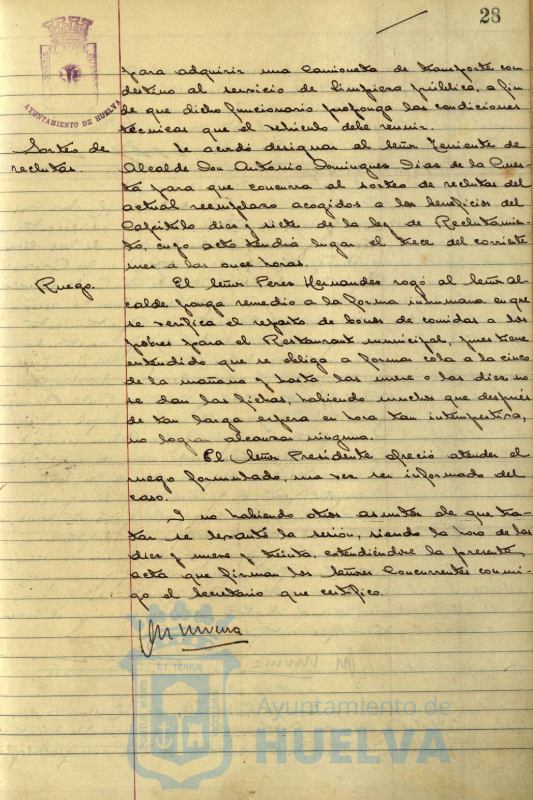 28
AYUNTAMIENTO DE HUELVA
para adquirir una camioneta de transporte con
destino al servicio de limpieza pública, a fin
de que dicho funcionario proponga las condiciones
técnicas que el vehículo debe reunir.
Sorteo de
reclutas.
Se acordó designar al Señor Teniente de
Alcalde Don Antonio Domínguez Díaz de la Cues-
ta para que concurra al sorteo de reclutas del
actual reemplazo acogidos a los beneficios del
Capítulo diez y siete de la ley de Reclutamien-
to, cuyo acto tendrá lugar el trece del corriente
mes a las once horas.
Ruego.
El Señor Perez Hernandez rogó al Señor Al-
calde ponga remedio a la forma inhumana en que
se verifica el reparto de bonos de comidas a los
pobres para el Restaurant municipal, pues tiene
entendido que se obliga a formar cola a la cinco
de la mañana y hasta las nueve o las diez no
se dan las fichas, habiendo muchos que después
de tan larga espera en hora tan intempestiva,
no logran alcanzar ninguna.
El Señor Presidente ofreció atender el
ruego formulado, una vez sea informado del
caso.
Y no habiendo otros asuntos de que tra-
tar se levantó la sesión, siendo la hora de las
diez y nueve y treinta, extendiéndose la presente
acta que firman los Señores Concurrentes conmi-
go el Secretario que certifico.
ET TERRAE
PORTUS MARIS
CUSTODIA
Ayuntamiento de
HUELVA